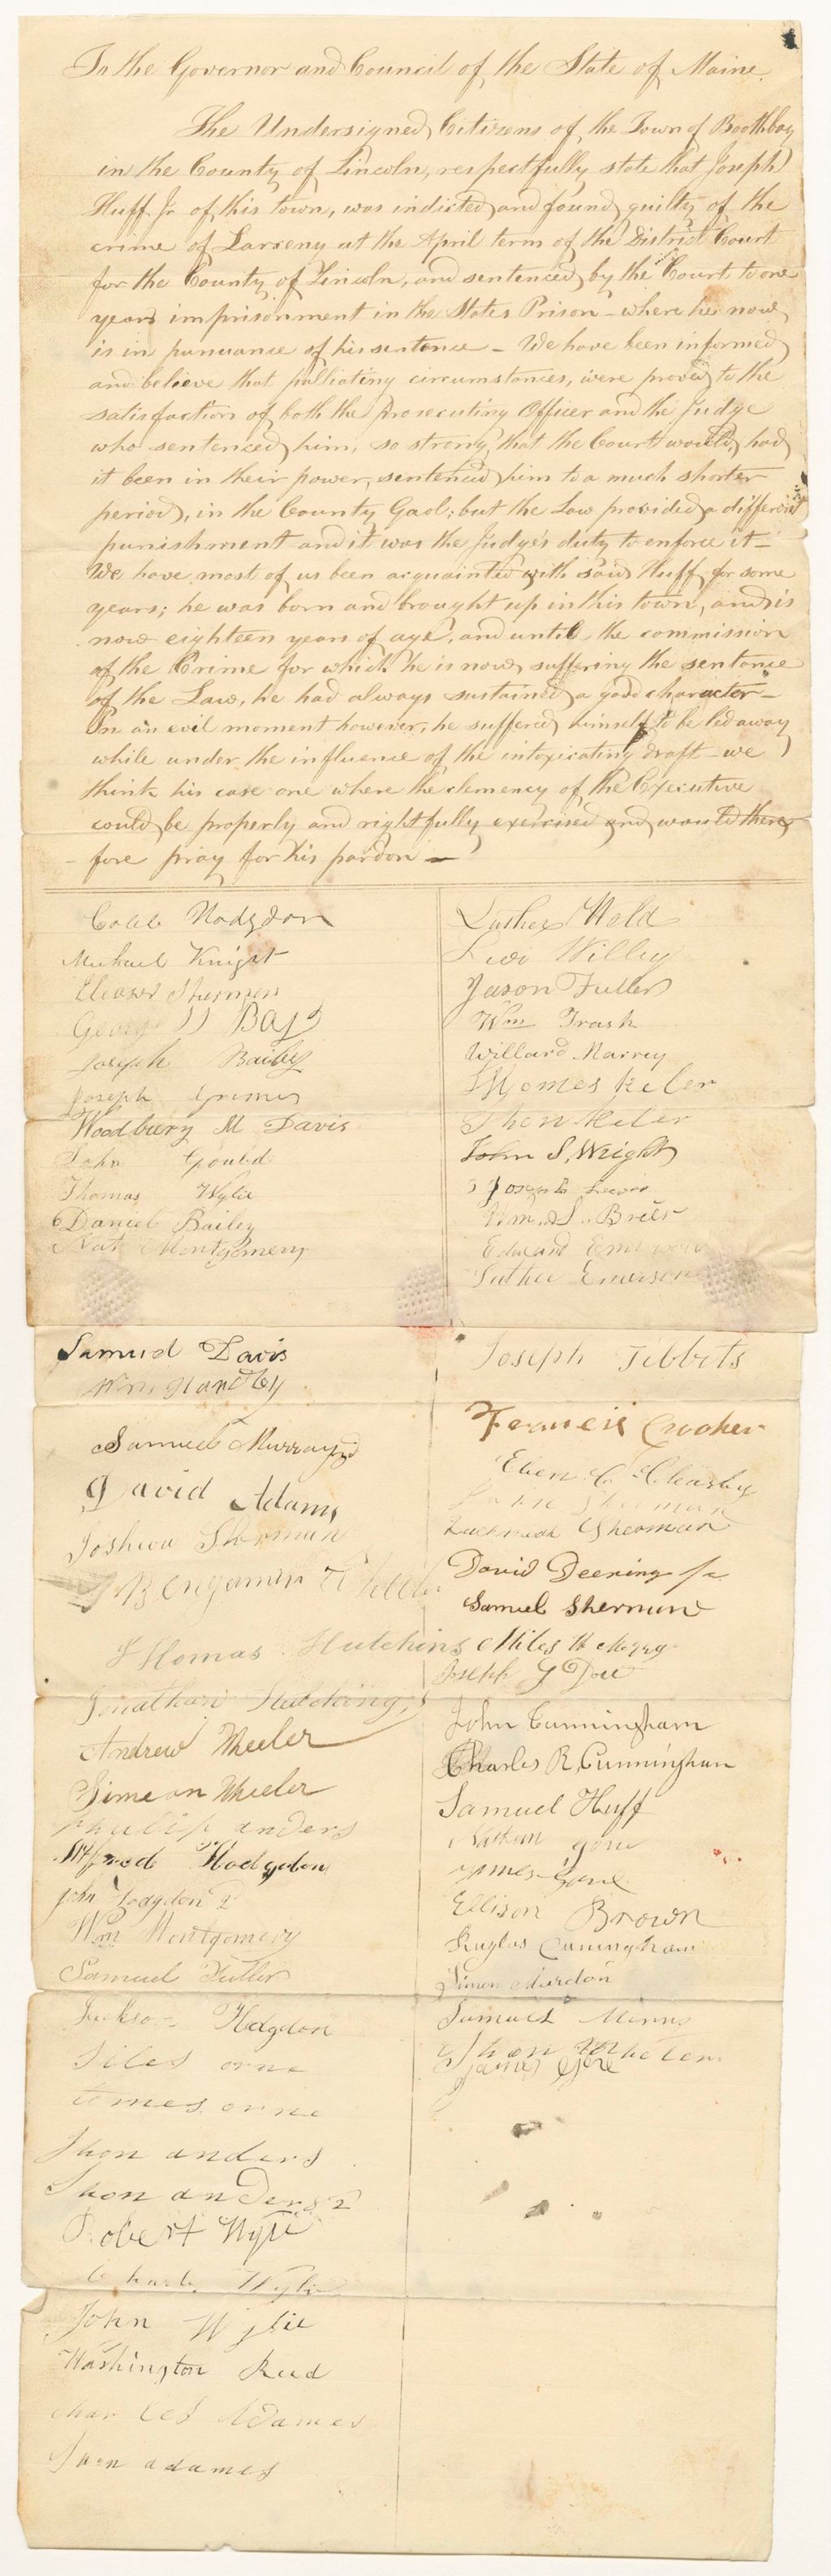 To the Governor and Council of the State of Maine.
The Undersigned Citizens of the Town of Boothbay
in the County of Lincoln, respectfully state that Joseph
Huff Jr of this town, was indicted and found guilty of the
crime of Larseny at the April term of the District Court
for the County of Lincoln, and sentenced by the Court to one
years imprisonment in the States Prison - where he now
is in pursuance of his sentence - We have been informed
and believe that palliating circumstances, were proved to the
satisfaction of both the Prosecuting Officer and the Judge
who sentenced him, so strong, that the Court would, had
it been in their power, sentenced him to a much shorter
period, in the County Gaol; but the Law provided a different
punishment and it was the Judge's duty to enforce it -
We have most of us been acquainted with said Huff for some
years; he was born and brought up in this town, and is
now eighteen years of age, and until the commission
of the Crime for which he is now suffering the sentence
of the Law, he had always sustained a good character -
In an evil moment however, he suffered himself to be led away
while under the influence of the intoxicating draft - we
think his case one where the clemency of the Executive
could be properly and rightfully exercised and would there
fore pray for his pardon -
Caleb Hodgdon
Michael Knight
Eleazer Sherman
George
Joseph Bailey
Joseph Grimes
Woodbury M Davis
John Gould
Thomas Wylie
Daniel Bailey
Nat Montgomery
Samuel Davis
Wm
Samuel Murray
David Adams
Joshua Sherman
Benjamin
Thomas Hutchins
Jonathan Hutchings
Andrew Wheeler
Simeon Wheeler
Philip anders
Alfred Hodgdon
John Hodgdon 2
Wm Montgomery
Samuel Fuller
Jackson Hodgdon
Siles orne
James orne
Jhon anders
Jhon anders 2
Robert Wylie
Charls Wylie
John Wylie
Washington Reed
Charles Adames
Jhon adames
Luther Weld
Willey
Jason Fuller
Wm Trask
Willard
Thomes Keler
Jhon Keler
John S. Wright
Joseph Lewis
Wm. S. Brier
Edward Emerson
Luther Emerson
Joseph Tibbets
Francis Crooker
Eben C. Cleasby
Sherman
Zachariah Sherman
David Deering Jr
Samuel Sherman
Miles W Merry
Joseph G Dow
John Cunningham
Charles R. Cunningham
Samuel Huff
Nathan gove
James Gove
Ellison Brown
Ruglas Cuningham
Simon
Samuel
Jhon
James Gove